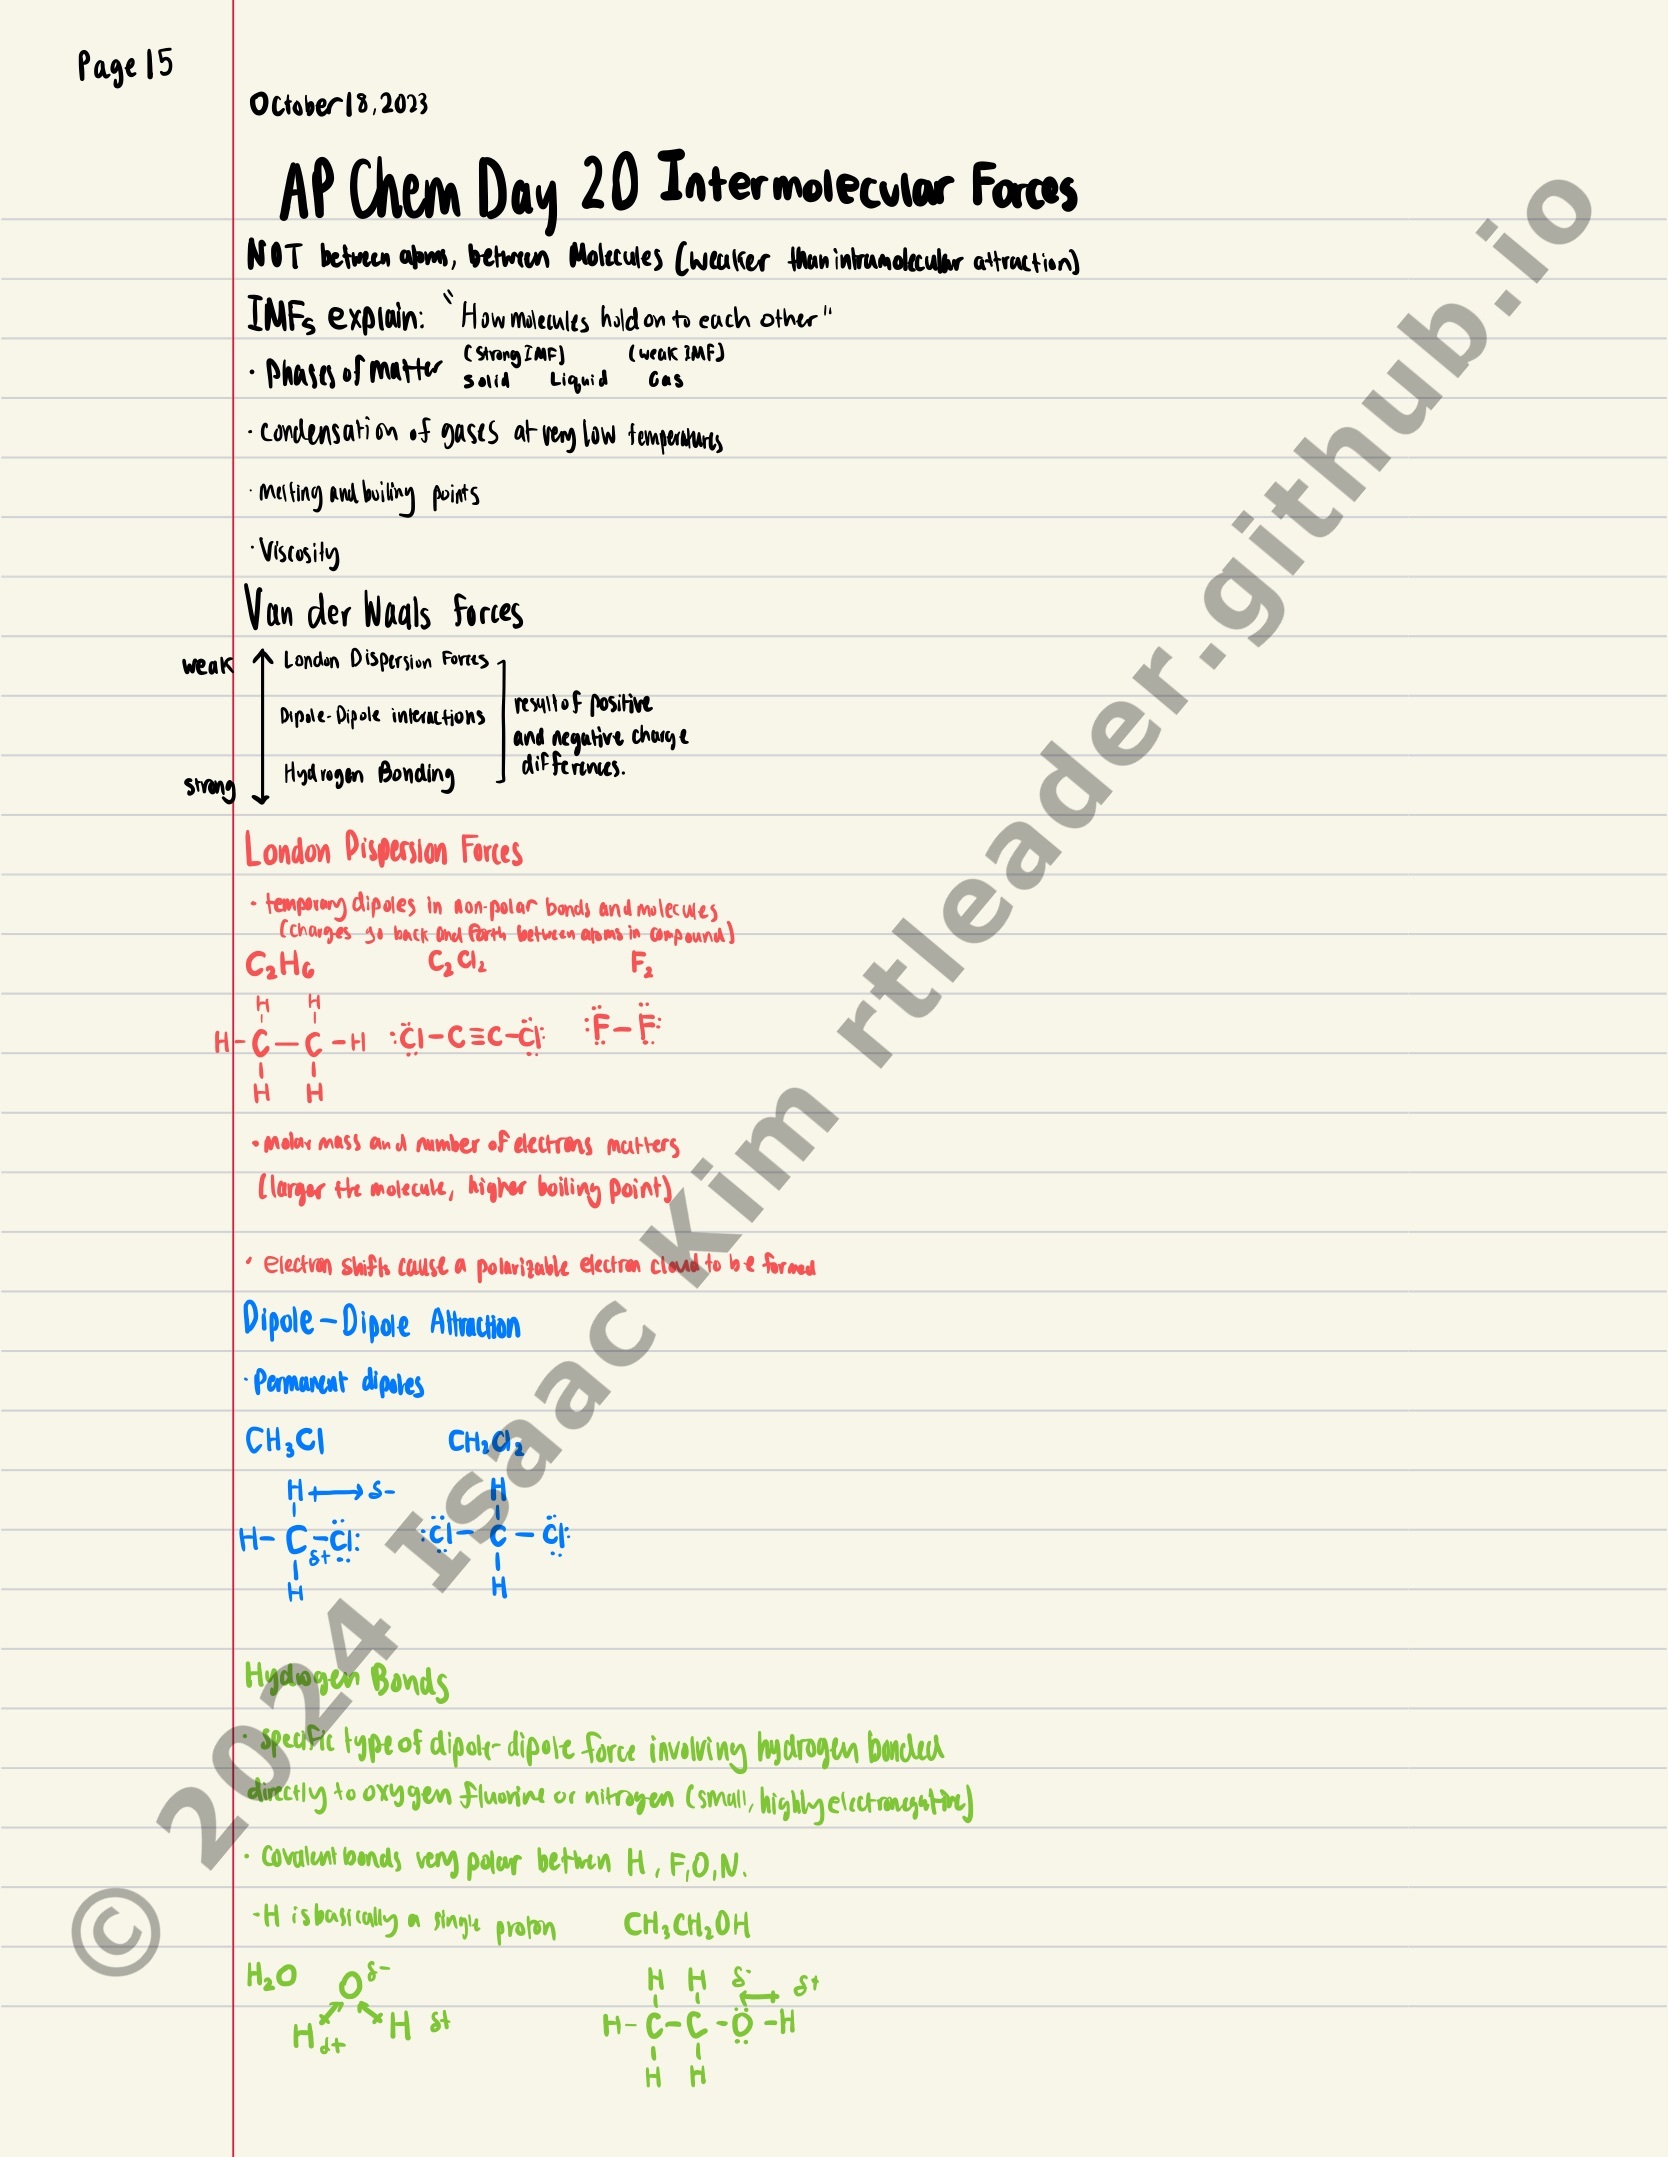 Page 15
October 18, 2023
AP Chem Day 20 Intermolecular Forces
NOT between atoms, between Molecules (weaker than intramolecular attraction)
IMFs explain: "How molecules hold on to each other"
(strong IMF) (weak IMF)
· Phases of matter solid Liquid Gas
· condensation of gases at very low temperatures
· melting and boiling points
· Viscosity
Van der Waals Forces
weak London Dispersion Forces
Dipole-Dipole interactions result of positive
and negative charge
strong Hydrogen Bonding differences.
London Dispersion Forces
· temporary dipoles in non-polar bonds and molecules
(charges go back and forth between atoms in compound)
C₂H₆ C₂Cl₂ F₂
H H
H-C-C-H :Cl-C≡C-Cl: :F-F:
H H
· molar mass and number of electrons matters
(larger the molecule, higher boiling point)
· Electron shifts cause a polarizable electron cloud to be formed
Dipole-Dipole Attraction
· Permanent dipoles
CH₃Cl CH₂Cl₂
H δ- H
H-C-Cl: :Cl-C-Cl:
δ+
H H
Hydrogen Bonds
· specific type of dipole-dipole force involving hydrogen bonded
directly to oxygen fluorine or nitrogen (small, highly electronegative)
· Covalent bonds very polar between H, F, O, N.
-H is basically a single proton CH₃CH₂OH
H₂O O δ- H H δ- δ+
H δ+ H δ+ H-C-C-O-H
H H
© 2024 Isaac Kim rtleader.github.io